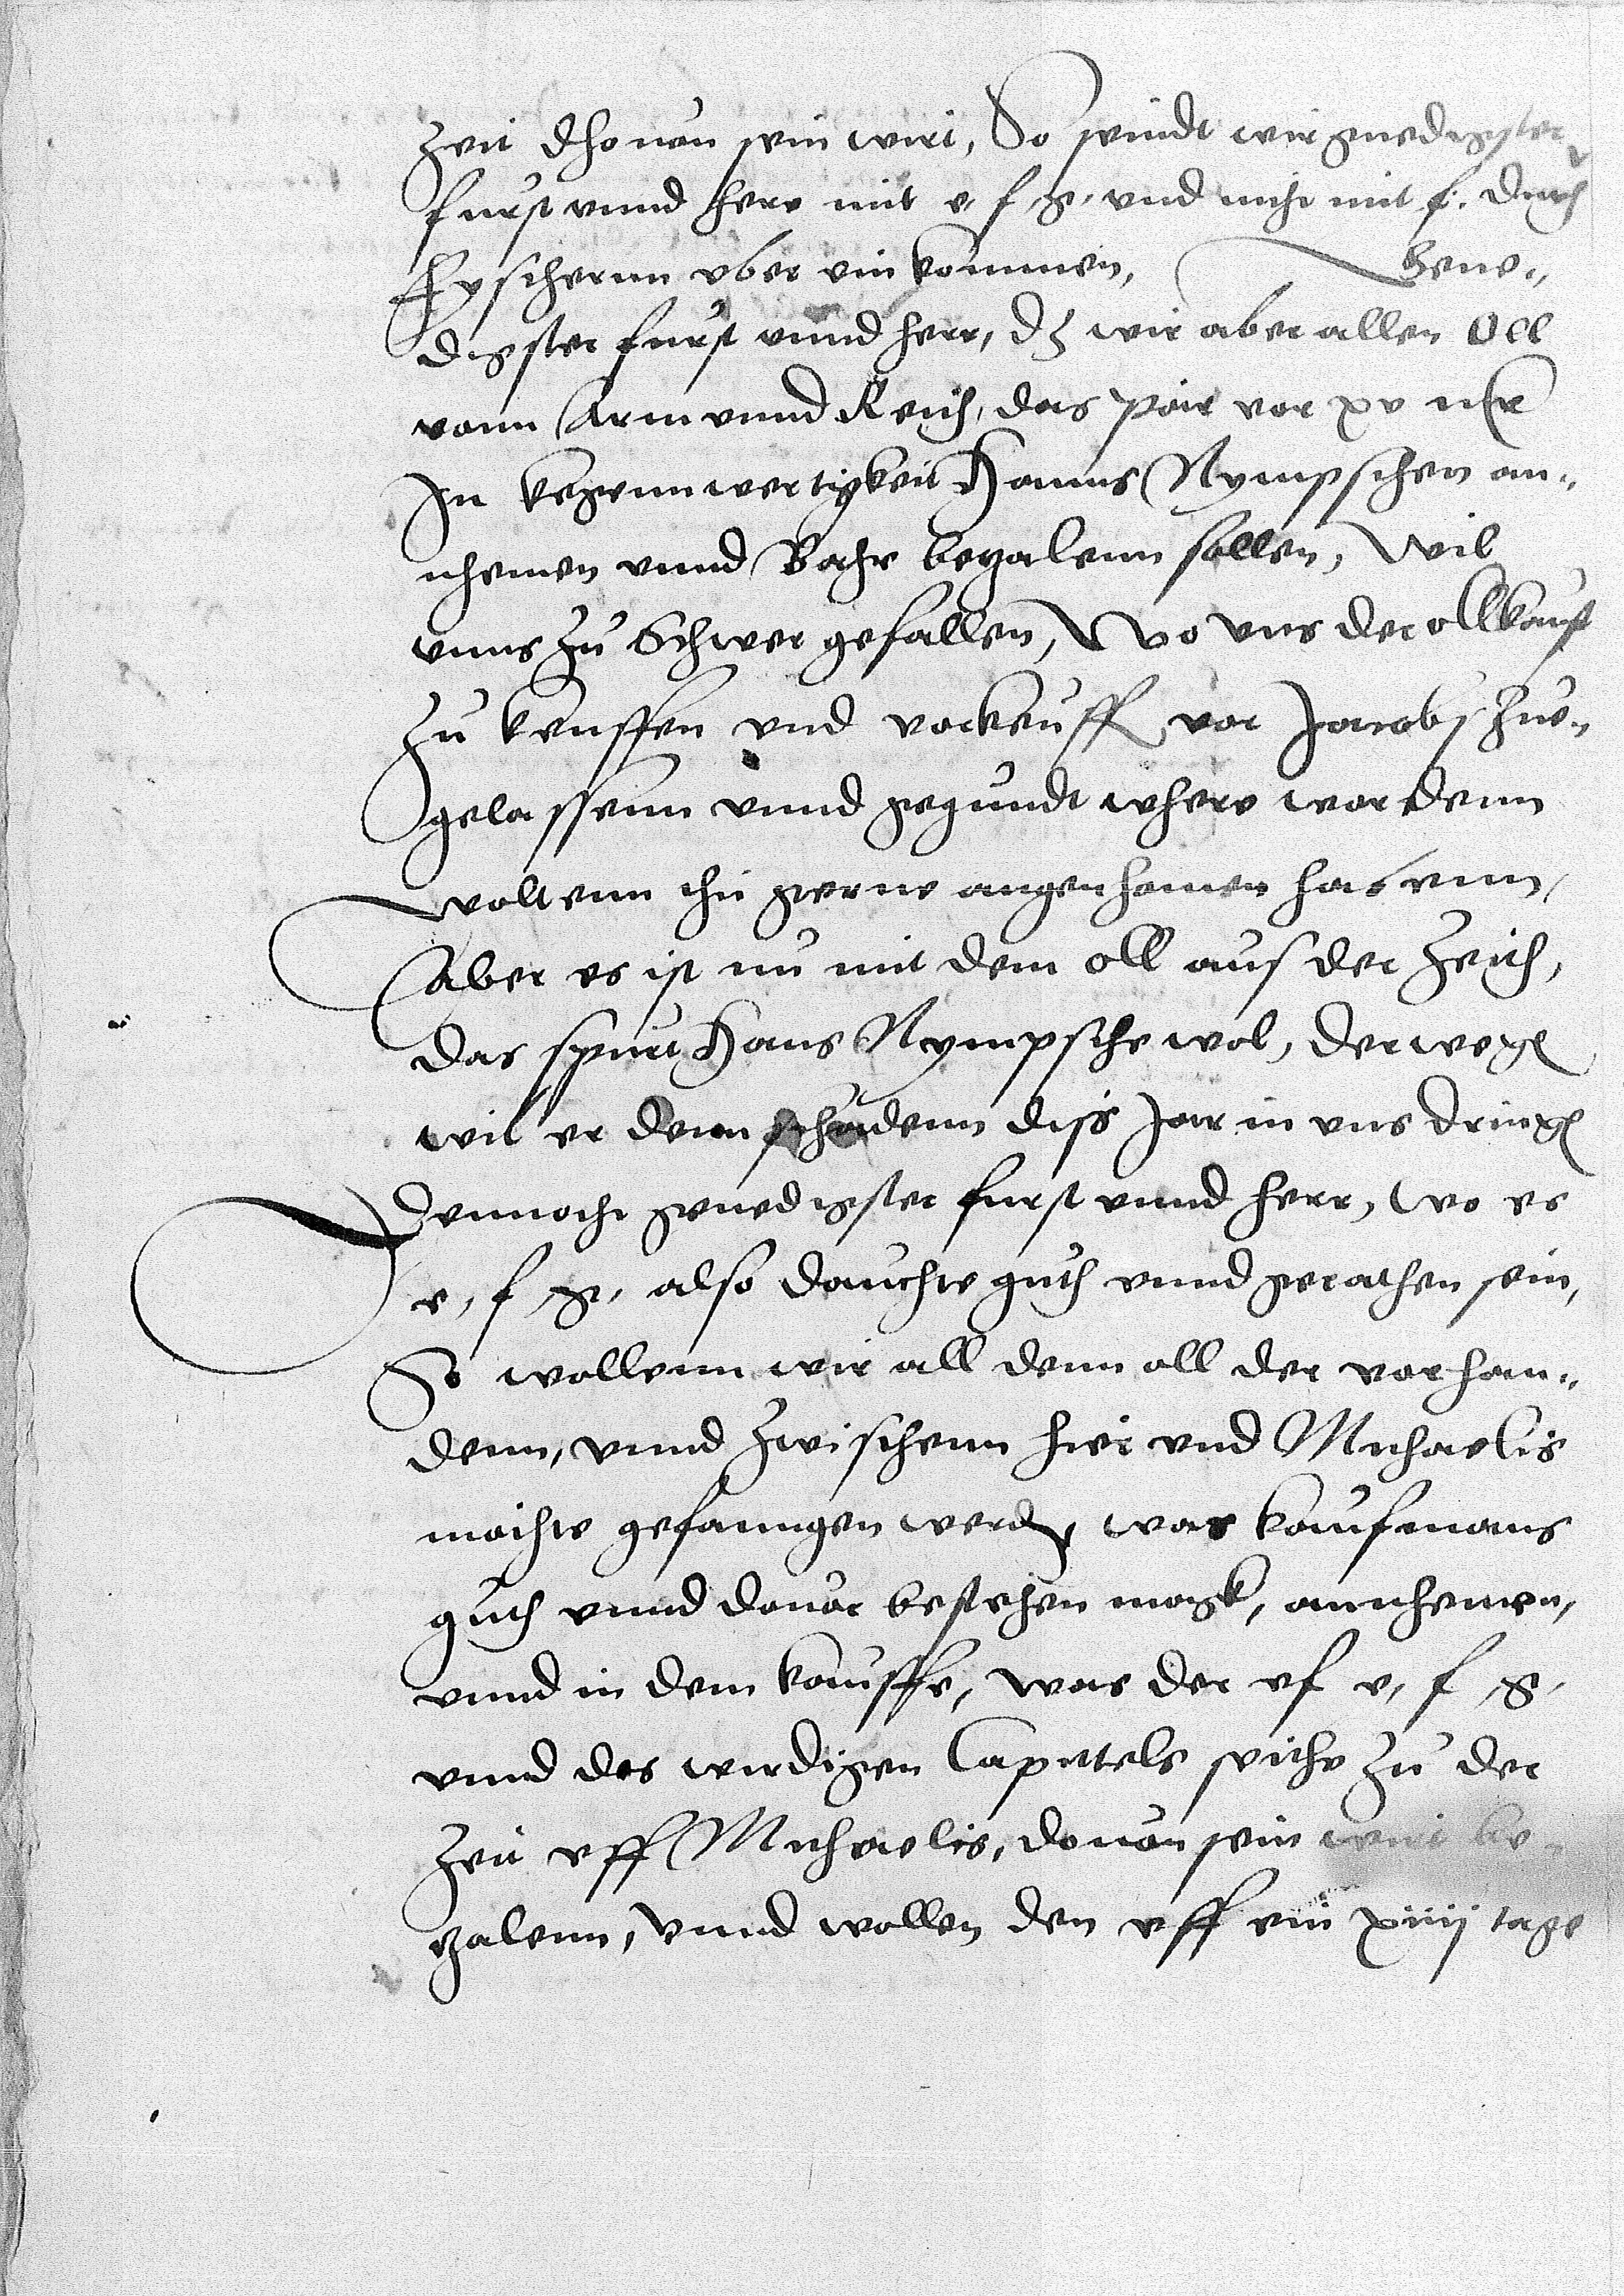 Zeit dhouon sein wirt, So seindt wir gnedigster
furst vnnd here mit e, f, g, vnd nicht mit f. durch
fyschernn vber ein kommen, Gene„
digster furst vnnd herr, dz wir aber allen Oll
vonn Arm vnnd Reich, das pár vor xv
In kegennwertigkeit Hanns Nympschen an„
nhemen vnnd Bahr bezalenn sollen, Wil
vnns zu Schwer gefallen, Wo vns der ollkauf
zu keuffen vnd vorkeuffen vor Jacobj zuo„
gelassenn vnnd gegundt where wordenn
woltenn ehr gerne angenhemen habenn,
Aber es ist nu mit dem oll aus der Zeith,
das spurt Hans Nympsche wol, derwegen
wil er denn schadenn diß Jar in vns dringen
Dennoch gnedigster furst vnnd herr, wo es
e, f, g, also dauchte guth vnnd gerathen sein,
So wollenn wir all denn oll der vorhan„
denn, vnnd zwischenn hier vnd Michaelis
mochte gefanngen werden, was kaufmans
guth vnnd douor bestehen magk, annhemen,
vnnd in dem kauffe, was der vf e, f, g,
vnnd des wirdigen Capittels seithe zu der
Zeit vff Michaelis, douon sein wirt be„
zalenn, Vnnd wollen den vff ein xiiij tage